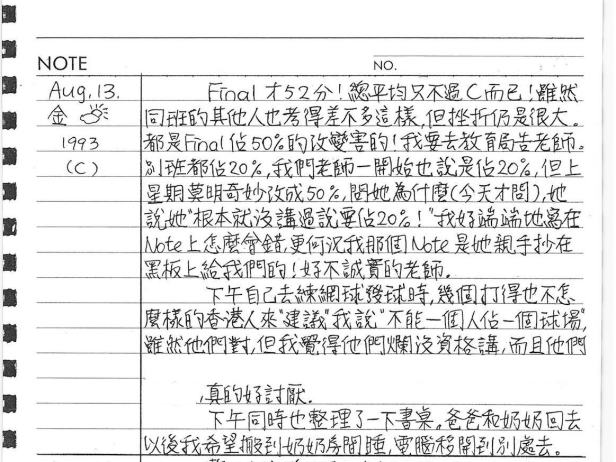 NOTE NO.
Aug. 13.
金
1993
(C)
Final 才52分!總平均只不過C而已!雖然
同班的其他人也考得差不多這樣,但挫折仍是很大。
都是Final佔50%的改變害的!我要去教育局告老師。
別班都佔20%,我們老師一開始也說是佔20%,但上
星期莫明奇妙改成50%,問她為什麼(今天才問),她
說她"根本就沒講過說要佔20%!"我好端端地寫在
Note上怎麼會錯,更何況我那個Note是她親手抄在
黑板上給我們的!好不誠實的老師。
下午自己去練網球發球時,幾個打得也不怎
麼樣的香港人來"建議"我說"不能一個人佔一個球場",
雖然他們對,但我覺得他們爛沒資格講,而且他們
,真的好討厭.
下午同時也整理了一下書桌,爸爸和奶奶回去
以後我希望搬到奶奶房間睡,電腦移開到別處去。